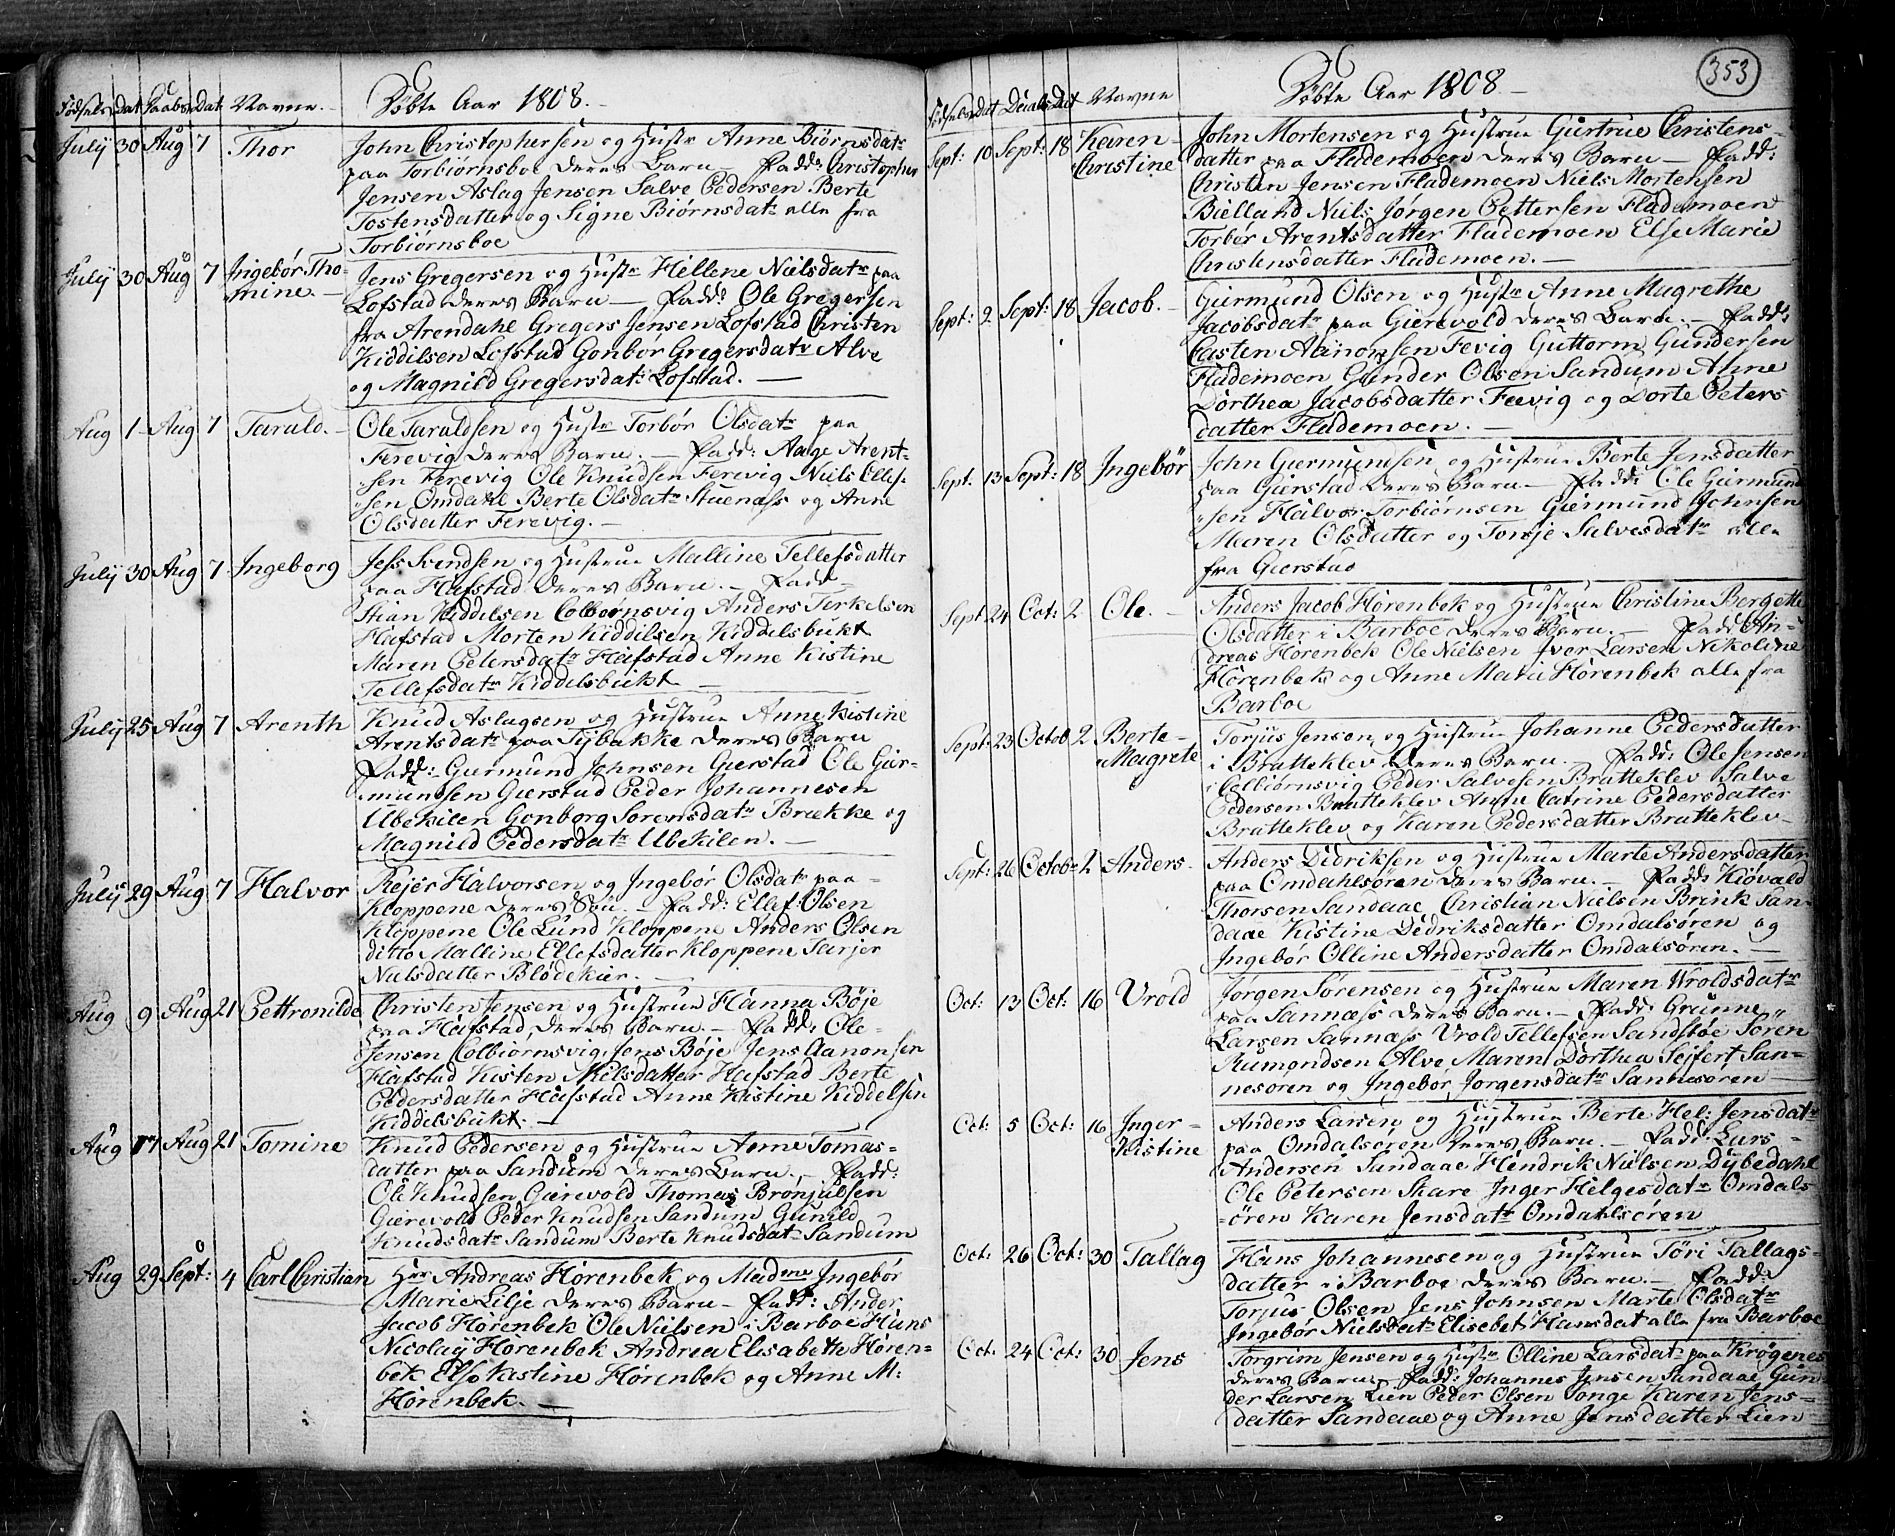 Fødsels Dat Daabs Dat Navne. Døbte Aar 1808.
July 30 Aug 7 Thor
John Christophersen og Hustr Anne Biørnsdatr
paa Torbiørnsboe deres Barn – Fadd: Christopher
Jensen Aslag Jensen Salve Pedersen Berte
Tostensdatter og Signe Biørnsdatr alle fra
Torbiørnsboe
July 30 Aug 7 Ingebør Tho-
mine. –
Jens Gregersen og Hustr Hellene Nielsdatr paa
Lofstad deres Barn – Fadd: Ole Gregersen
fra Arendahl Gregers Jensen Lofstad Christen
Kiddilsen Lofstad Gonbør Gregersdatr Alve
og Magnild Gregersdatr Lofstad. –
Aug 1 Aug 7 Tarald. –
Ole Taraldsen og Hustr Torbør Olsdatr paa
Ferevig deres Barn. – Fadd: Aage Arent-
sen Ferevig Ole Knudsen Ferevig Niels Ellef-
sen Omdahl Berte Olsdatr Stuenæss og Anne
Olsdatter Ferevig. –
July 30 Aug 7 Ingeborg
Jess Svendsen og Hustrue Malline Tellefsdatter
paa Hafstad deres Barn. – Fadd –
Stian Kiddelsen Colbiørnsvig Anders Terkelsen
Hafstad Morten Kiddilsen Kiddelsbukt
Maren Petersdatr Hafstad Anne Kistine
Tellefsdatr Kiddelsbukt –
July 25 Aug 7 Arenth
Knud Aslagsen og Hustrue Anne Kistine
Arentsdatr paa Tybakke deres Barn
Fadd: Giermund Johnsen Gierstad Ole Gier-
mundsen Gierstad Peder Johannesen
Ubekilen Gonborg Sørensdatr Brække og
Magnild Pedersdatr Ubekilen. –
July 29 Aug 7 Halvor
Rejer Halvorsen og Ingebør Olsdatr paa –
Kloppene deres Søn. – Fadd: Ellef Olsen
Kloppene Ole Lund Kloppene Anders Olsen
ditto Malline Ellefsdatter Kloppene Tarjer
Nielsdatter Blødekier. –
Aug 9 Aug 21 Pettronilde
Christen Jensen og Hustrue Hanna Bøje
paa Hafstad deres Barn. – Fadd: Ole –
Jensen Colbiørnsvig Jens Bøje Jens Aanonsen
Hafstad Kisten Nielsdatter Hafstad Berte
Pedersdatter Hafstad Anne Kistine Kiddelsen
Kiddelsbukt. –
Aug 17 Aug 21 Tomine
Knud Pedersen og Hustrue Anne Tomas-
datter paa Sandum deres Barn. – Fadd:
Ole Knudsen Gierevold Thomas Bronjulsen
Gierevold Peder Knudsen Sandum Gunild
Knudsdatr Sandum Berte Knudsdatr Sandum
Aug 29 Sept: 4 Carl Christian
Hrr Andreas Hørenbek og Madme Ingebør
Marie Lilje deres Barn – Fadd: Ander
Jacob Hørenbek Ole Nielsen i Barboe Hans
Nicolay Hørenbek Andrea Elisabette Høren-
bek Else Kastine Hørenbek og Anne M:
Hørenbek. –
353
Fødsels Dat Daabs Dat Navne Døbte Aar 1808 –
Sept: 10 Sept: 18 Karen –
Christine
John Mortensen og Hustrue Giertrue Christens-
datter paa Flademoen deres Barn – Fadd:
Christen Jensen Flademoen Niels Mortensen
Bielland Niels Jørgen Pettersen Flademoen
Torbør Arentsdatter Flademoen Else Marie
Christensdatter Flademoen. –
Sept: 2 Sept: 18 Jacob. –
Giermund Olsen og Hustr Anne Magrethe
Jacobsdatr paa Gierevold deres Barn. – Fadd:
Casten Aanonsen Fevig Guttorm Gundersen
Flademoen Gunder Olsen Sandum Anne
Dorthea Jacobsdatter Fævig og Dorte Peters
datter Flademoen. –
Sept: 13 Sept: 18 Ingebør
John Giermundsen og Hustrue Berte Jensdatter
paa Gierstad deres Barn – Fadd: Ole Giermund
sen Halvor Torbiørnsen Giermund Johnsen
Maren Olsdatter og Tonje Salvesdatr alle
fra Gierstad
Sept 24 Oct: 2 Ole. –
Anders Jacob Hørenbek og Hustrue Christine Bergette
Olsdatter i Barboe deres Barn. – Fadd An-
dreas Hørenbek Ole Nielsen Iver Larsen Nikoline
Hørenbek og Anne Marie Hørenbek alle fra
Barboe
Sept: 23 Octob 2 Berte –
Magrete
Torjus Jensen og Hustrue Johanne Pedersdatter
i Bratteklev deres Barn. – Fadd: Ole Jensen
i Colbiørnsvig Peder Salvesen Bratteklev Salve
Pedersen Bratteklev Anne Catrine Pedersdatter
Bratteklev og Karen Pedersdatter Bratteklev –
Sept: 26 Octob: 2 Anders. –
Anders Didriksen og Hustrue Marte Andersdatter
paa Omdahlsøren deres Barn. – Fadd: Kiøvald
Thorsen Sandaae Christian Nielsen Brink San-
daae Kistine Didriksdatter Omdalsøren og
Ingebør Olline Andersdatter Omdalsøren. –
Oct: 13 Oct: 16 Vrold
Jørgen Sørensen og Hustrue Maren Vroldsdatr
paa Sannæss deres Barn. – Fadd: Grunne
Larsen Sannæss Vrold Tellefsen Sandstøe Søren
Rumondsen Alve Maren Dorthea Sejfert San-
nesøren og Ingebør Jørgensdatr Sannesøren –
Oct: 5 Oct: 16 Inger –
Kistine
Anders Larsen og Hustrue Berte Hel: Jensdatr
paa Omdalsøren deres Barn. – Fadd: Lars –
Andersen Sandaae Hendrik Nielsen Dybedahl
Ole Petersen Skare Inger Helgesdatr Omdals-
øren Karen Jensdatr Omdahlsøren
Oct: 26 Oct: 30 Tallag
Hans Johannesen og Hustrue Tøri Tallags-
datter i Barboe deres Barn. – Fadd:
Torjus Olsen Jens Johnsen Marte Olsdatr
Ingebør Nielsdatr Elisebet Hansdat alle fra Barboe
Oct: 24 Oct: 30 Jens
Torgrim Jensen og Hustr Olline Larsdatr paa Krøgenes
deres Barn – Fadd: Johannes Jensen Sandaae Gun
der Larsen Lien Peder Olsen Songe Karen Jens-
datter Sandaae og Anne Jensdatter Lien